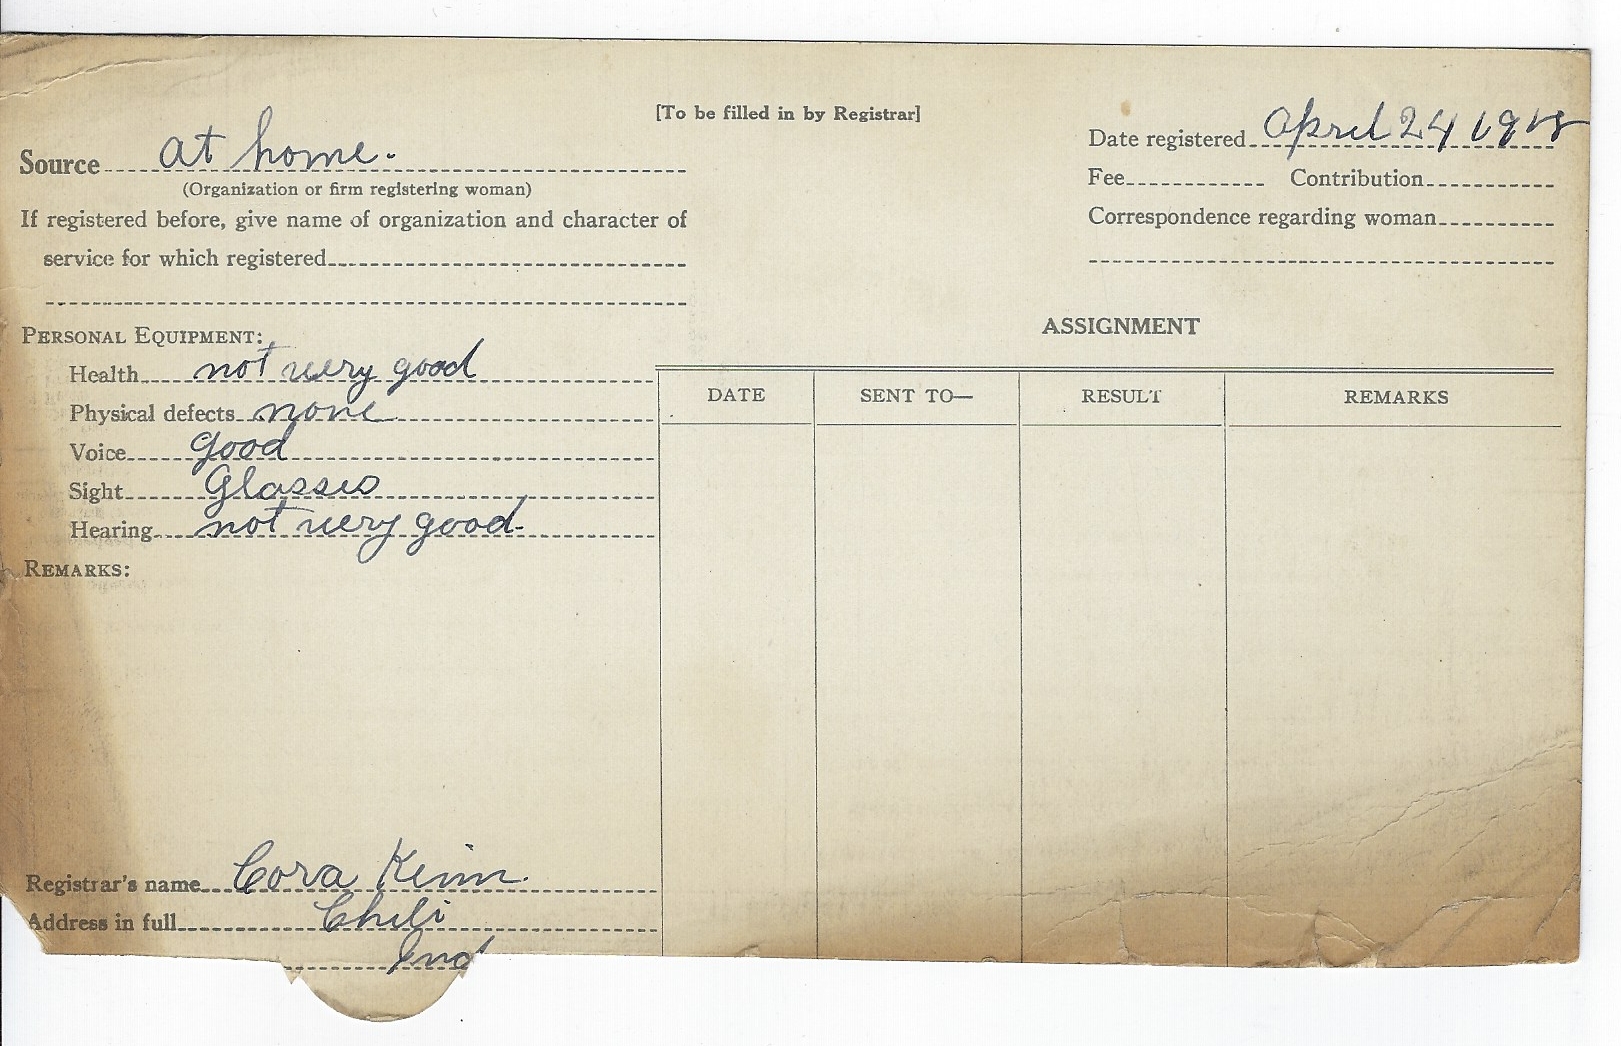 [To be filled in by Registrar]
Source at home.
(Organization or firm registering woman)
If registered before, give name of organization and character of
service for which registered
Date registered April 24 1918
Fee Contribution
Correspondence regarding woman
PERSONAL EQUIPMENT:
Health not very good
Physical defects none
Voice good
Sight Glasses
Hearing not very good
REMARKS:
Registrar's name Cora
Address in full Chili
Ind
ASSIGNMENT
DATE SENT TO— RESULT REMARKS